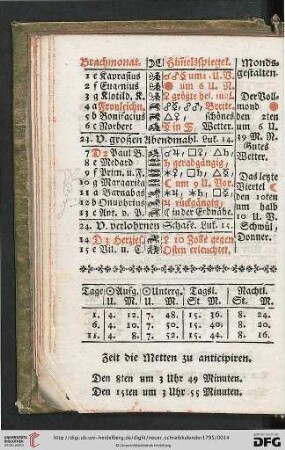 Brachmonat. Himelsspiegel. Monds-
gestalten.
1 e Kaprasius um 1 U. V.
2 f Eugenius um 6 U.
3 g Klotild. K. größte hel.
4 a Fronleichn. Breite.
5 b Bonifacius schönes
6 c Norbert Wetter.
23. V. großen Abendmahl. Luk. 14.
7 D 2 Paul B.
8 e Medard geradgängig,
9 f Prim. u. F.
10 g Margarita um 9 U. Vor.
11 a Barnabas
12 b Onuphrius rückgängig,
13 c Ant. v. P. in der Erdnähe.
24. V. verlohrnen Schafe. Luk. 15.
14 D 3 10 Zolle gegen
15 e Vit. u. C. Osten erleuchtet.
Der Voll-
mond
den 2ten
um 6 U.
19 M. N.
Gutes
Wetter.
Das letzte
Viertel
den 10ten
um halb
10 U. V.
Schwül,
Donner.
Tage Aufg. Unterg. Tagsl. Nachtl.
U. M. U. M. St. M. St. M.
1. 4. 12. 7. 48. 15. 36. 8. 24.
6. 4. 10. 7. 50. 15. 40. 8. 20.
11. 4. 8. 7. 52. 15. 44. 8. 16.
Zeit die Metten zu anticipiren.
Den 8ten um 3 Uhr 49 Minuten.
Den 15ten um 3 Uhr 55 Minuten.
UNIVERSITÄTS-
BIBLIOTHEK
HEIDELBERG
http://digi.ub.uni-heidelberg.de/diglit/neuer_schreibkalender1795/0014
© Universitätsbibliothek Heidelberg
gefördert durch die
DFG